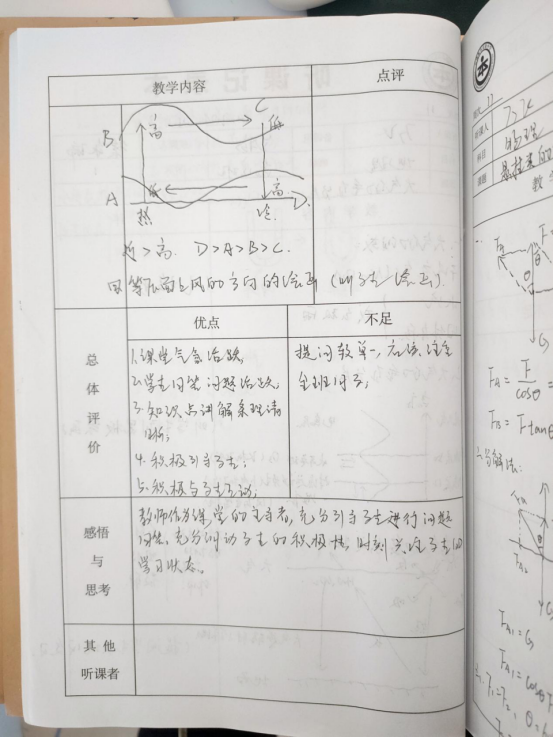 教学内容
点评
C
B
高
低
A
低
高
D
热
冷
近>高. D>A>B>C.
优点
不足
总体评价
1.课堂气氛活跃;
2.学生回答问题活跃;
3.知识点讲解条理清
晰;
4.积极引导学生;
5.积极与学生互动;
提问较单一,应该注重
全班同学;
感悟与思考
教师作为课堂的主导者,充分引导学生进行问题
回答,充分调动学生的积极性,时刻关注学生的
学习状态。
其他
听课者
听课人
科目
物理
课题
教
θ
F_A = F/cosθ =
F_B = Ftanθ
图解法:
F_A1 = G